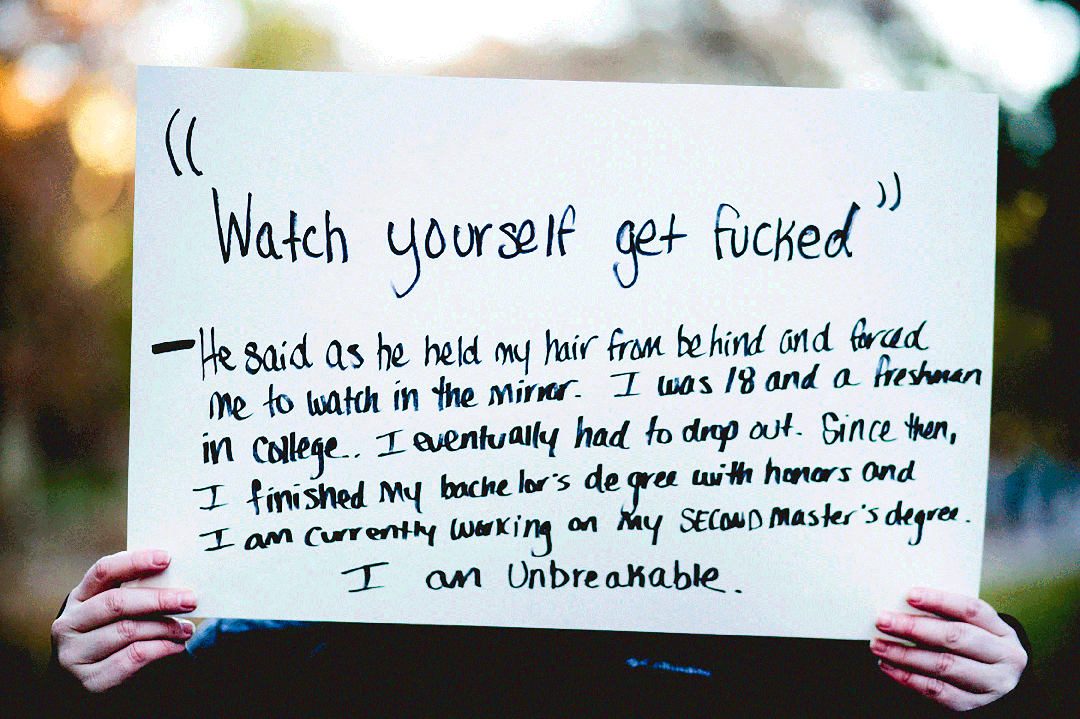 "
Watch yourself get fucked"
- He said as he held my hair from behind and forced
me to watch in the mirror. I was 18 and a freshman
in college.. I eventually had to drop out. Since then,
I finished my bachelor's degree with honors and
I am currently working on my SECOND master's degree.
I am Unbreakable.